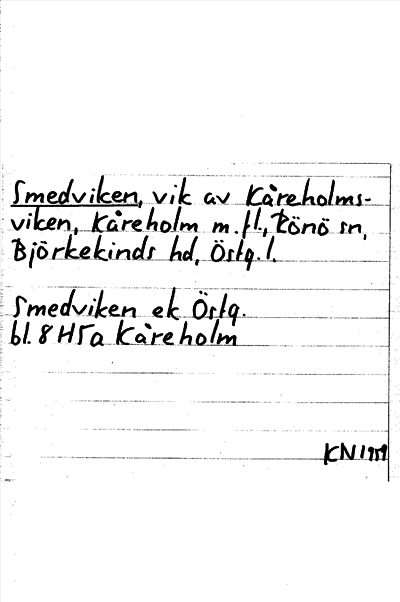 Smedviken, vik av Kåreholms-
viken, Kåreholm m.fl., Rönö sn,
Björkekinds hd, Östg. l.
Smedviken ek Östg.
bl. 8 H5a Kåreholm
KN 1959